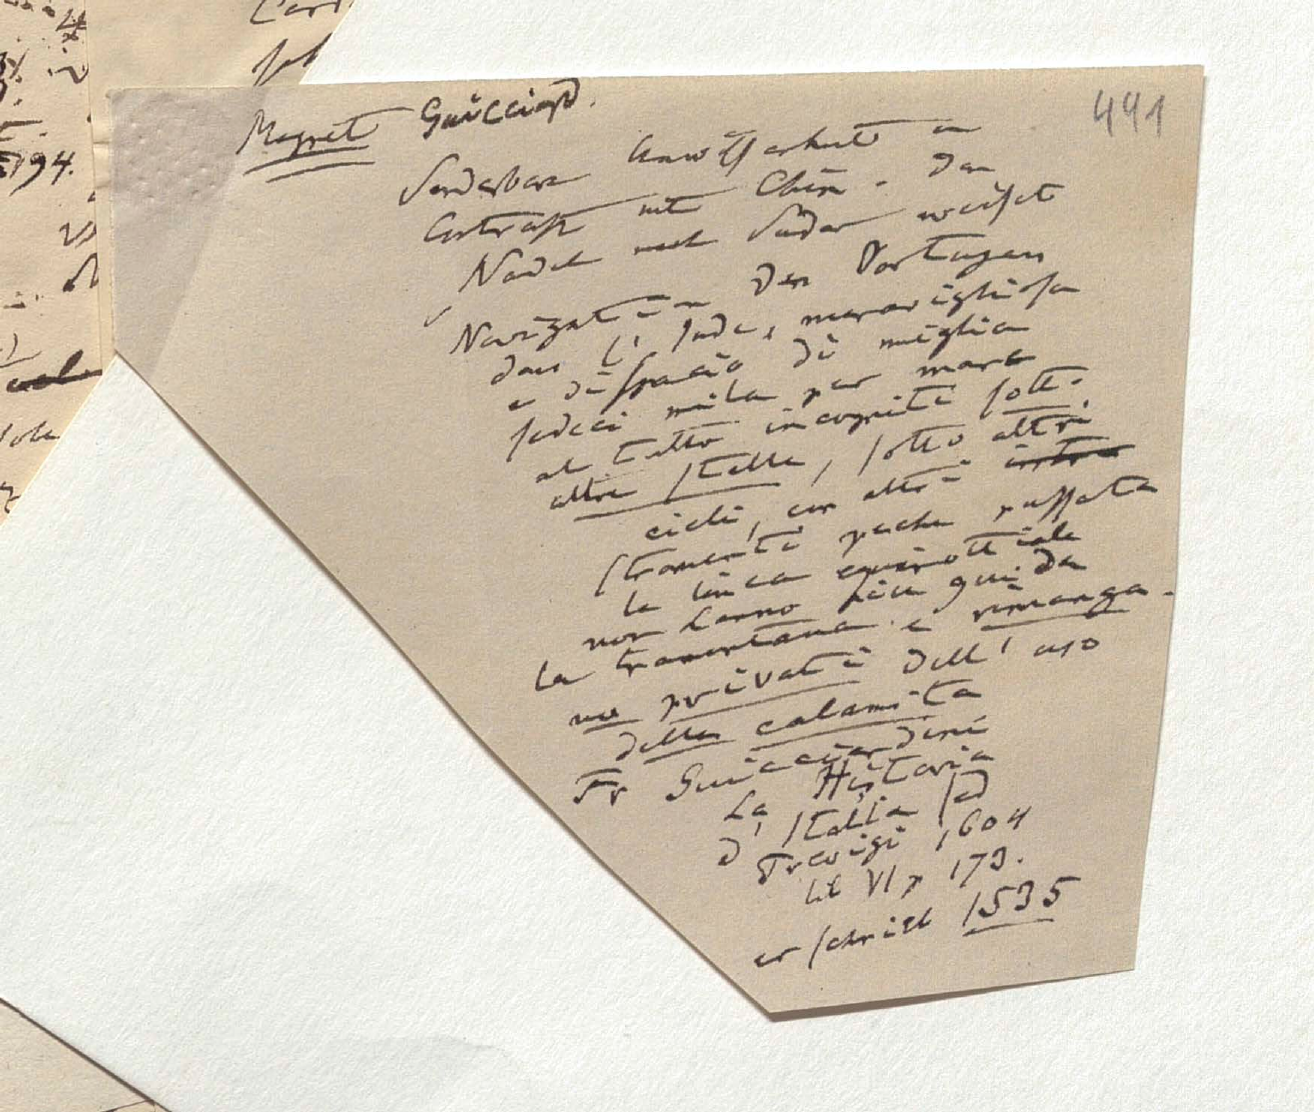 491
Magnet Guicciard.
Sonderbare Unwissenheit in
Contrast mit China. Der
Nadel nach Süden weiset
Navigation der Portugiesen
dans l'Inde, meravigliosa
e di spacio di miglia
sedeci mila per mare
al tutto incogniti sott.
altre stelle, sotto altri
cieli, con altri instru
stromenti perche passata
la linea equinottiale
non hanno piu guida
la tramontana e rimanga-
no privati dell' uso
della calamita
Fr Guicciardini
La Historia
d'Italia [ed]
Trevigi 1604
lib VI p 173.
er schrieb 1535